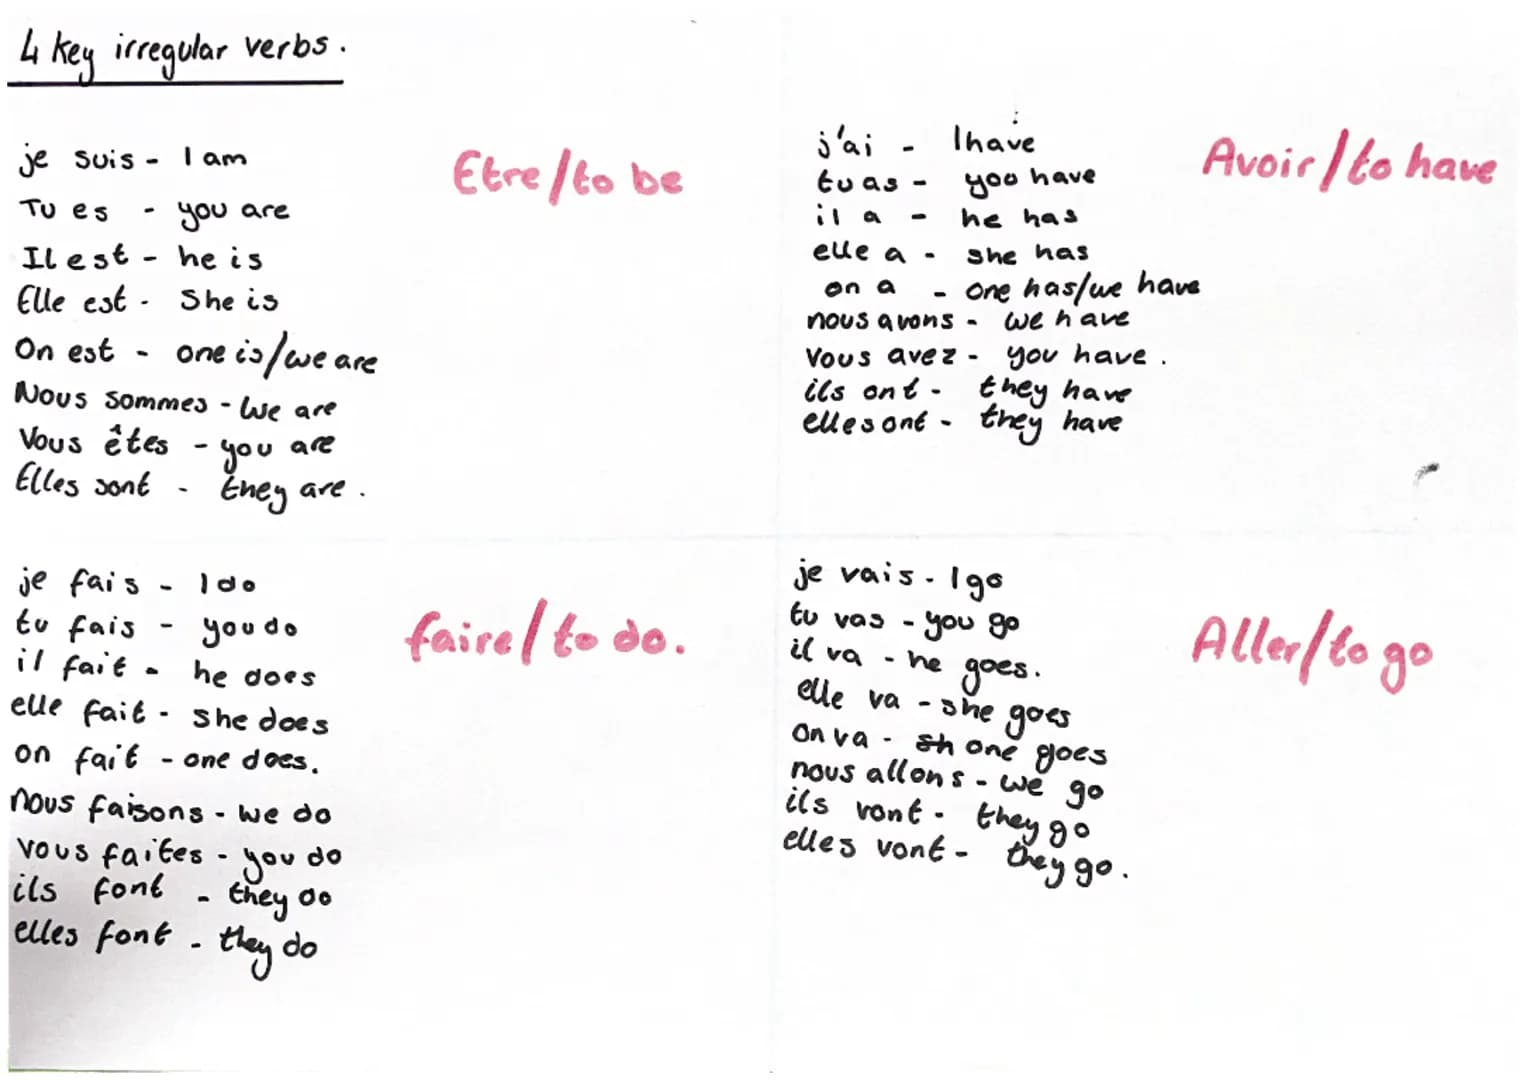 4 key irregular verbs.
je suis - I am
Tu es - you are
Il est - he is
Elle est - She is
On est - one is/we are
Nous sommes - We are
Vous êtes - you are
Elles sont - they are.
Etre/to be
j'ai - I have
tu as - you have
il a - he has
elle a - she has
on a - one has/we have
nous avons - we have
vous avez - you have.
ils ont - they have
elles ont - they have
Avoir/to have
je fais - I do
tu fais - you do
il fait - he does
elle fait - she does
on fait - one does.
nous faisons - we do
vous faites - you do
ils font - they do
elles font - they do
faire/to do.
je vais - I go
tu vas - you go
il va - he goes.
elle va - she goes
on va - sh one goes
nous allons - we go
ils vont - they go
elles vont - they go.
Aller/to go